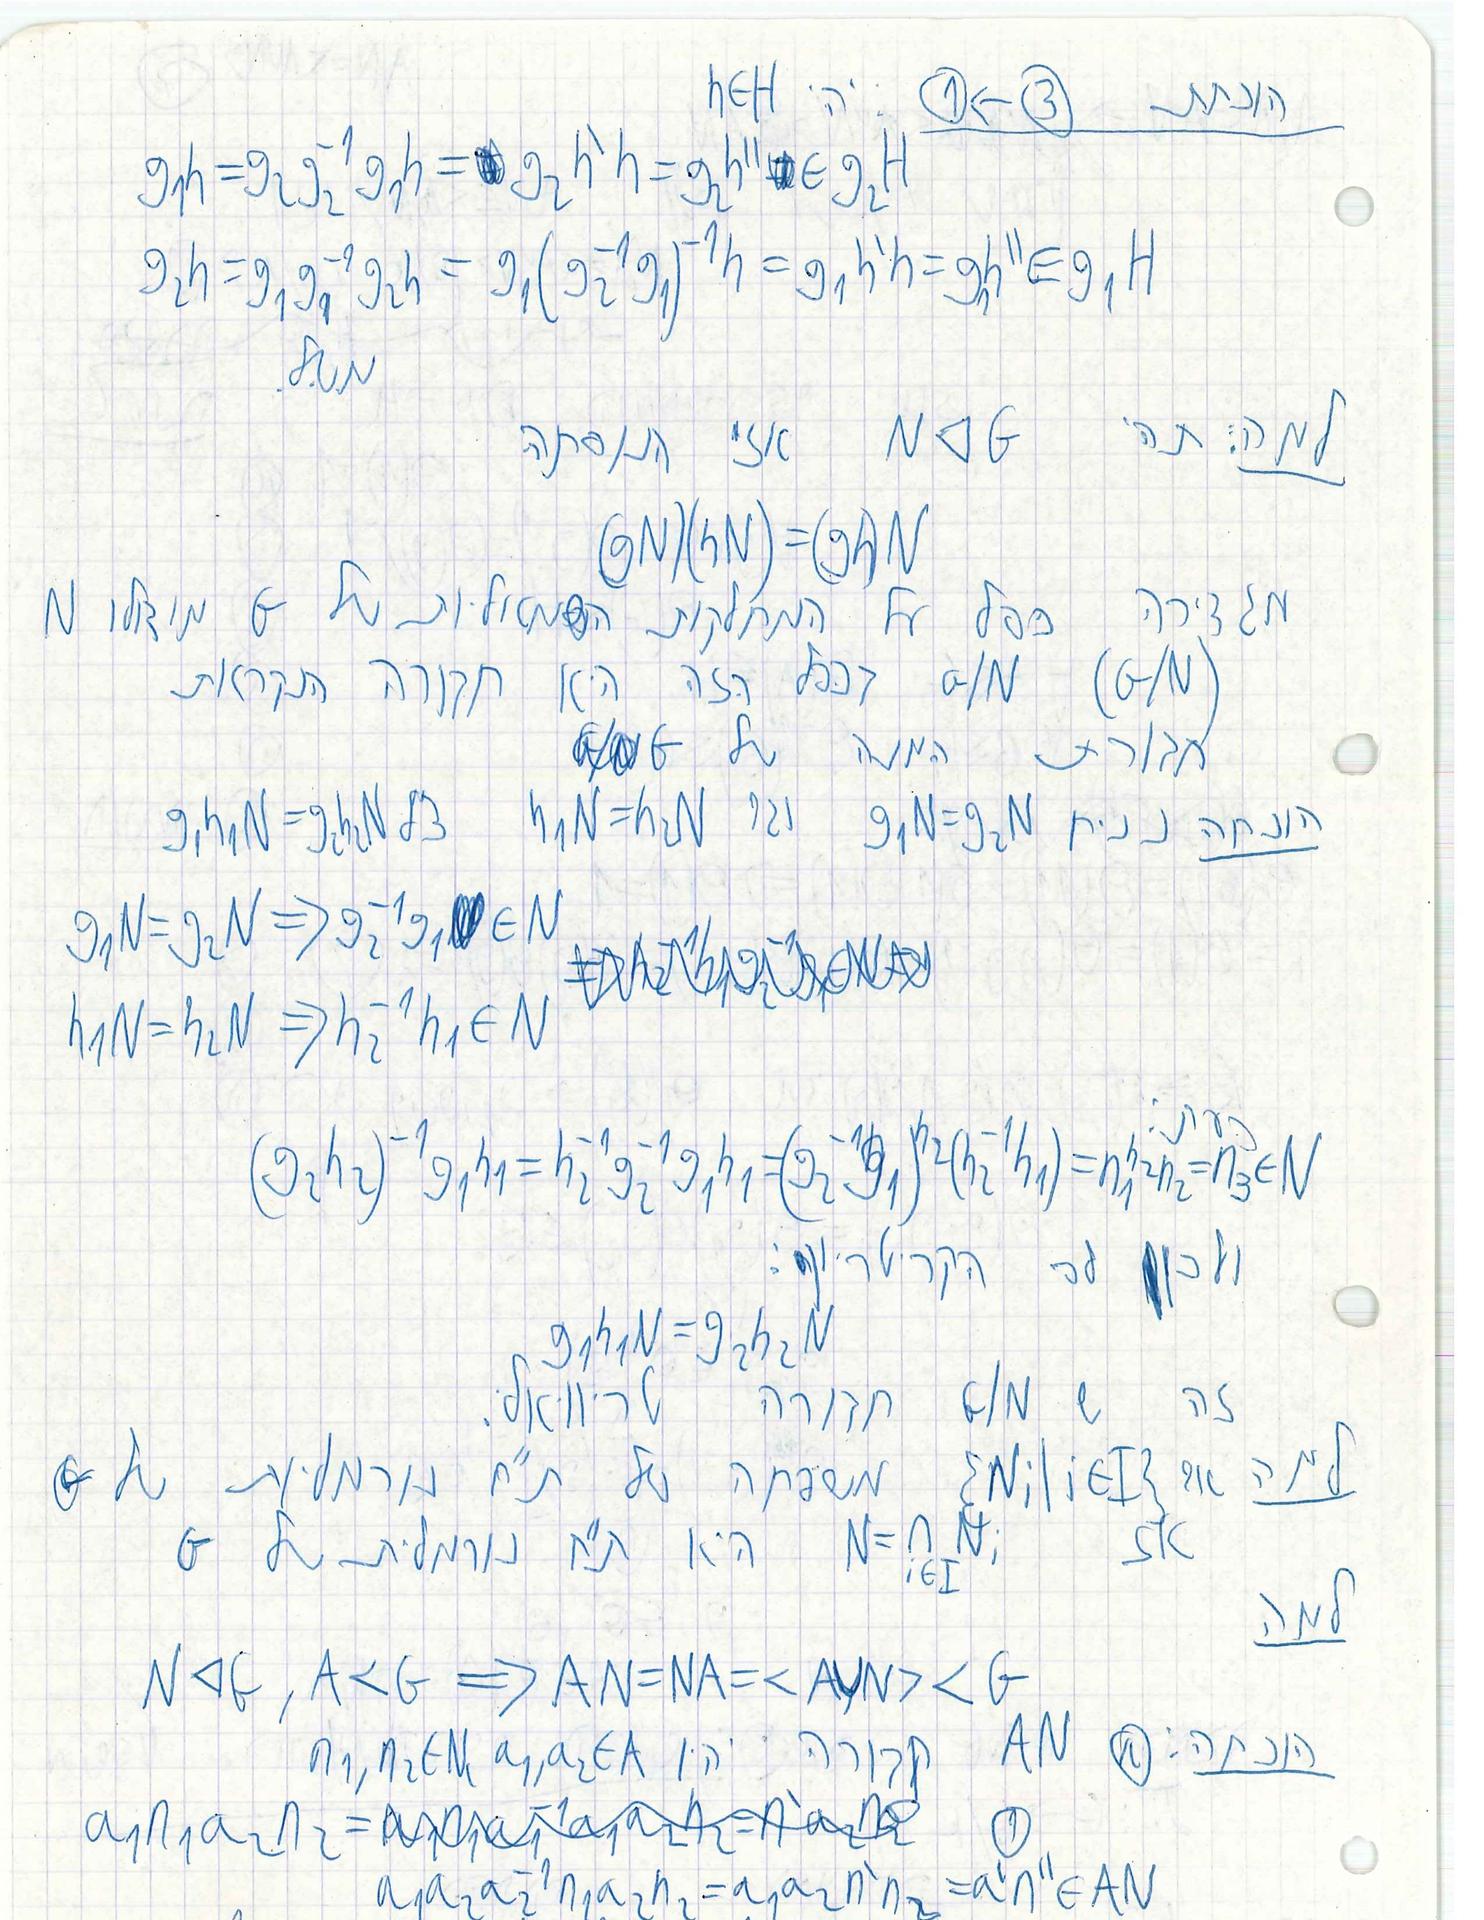 הוכחת ③→① : יהי h∈H
g₁h = g₂g₂⁻¹g₁h = g₂h'h = g₂h'' ∈ g₂H
g₂h = g₁g₁⁻¹g₂h = g₁(g₂⁻¹g₁)⁻¹h = g₁h'h = g₁h'' ∈ g₁H
מש"ל.
למה: תהי N◁G אזי הנוסחה
(gN)(hN)=(gh)N
מגדירה כפל על המחלקות השמאליות של G מודולו N
(G/N) G/N בכפל הזה היא חבורה הנקראת
חבורת המנה של G
הוכחה נניח g₁N=g₂N וגו h₁N=h₂N צ"ל g₁h₁N=g₂h₂N
g₁N=g₂N ⇒ g₂⁻¹g₁ ∈ N
h₁N=h₂N ⇒ h₂⁻¹h₁ ∈ N
כעת:
(g₂h₂)⁻¹g₁h₁ = h₂⁻¹g₂⁻¹g₁h₁ = (g₂⁻¹g₁)^h₂(h₂⁻¹h₁) = n₁^h₂n₂ = n₃ ∈ N
ולכן לפי הקריטריון:
g₁h₁N = g₂h₂N
זה ש G/N חבורה טריוויאלי.
למה אם {Nᵢ|i∈I} משפחה של ת"ח נורמליות של G
אז N=∩Nᵢ i∈I היא ת"ח נורמלית של G
למה
N◁G, A<G ⇒ AN=NA=<A∪N> < G
הוכחה: Ⓐ AN חבורה יהיו a₁,a₂∈A n₁,n₂∈N
① a₁n₁a₂n₂ =
a₁a₂a₂⁻¹n₁a₂n₂ = a₁a₂n'n₂ = a'n'' ∈ AN